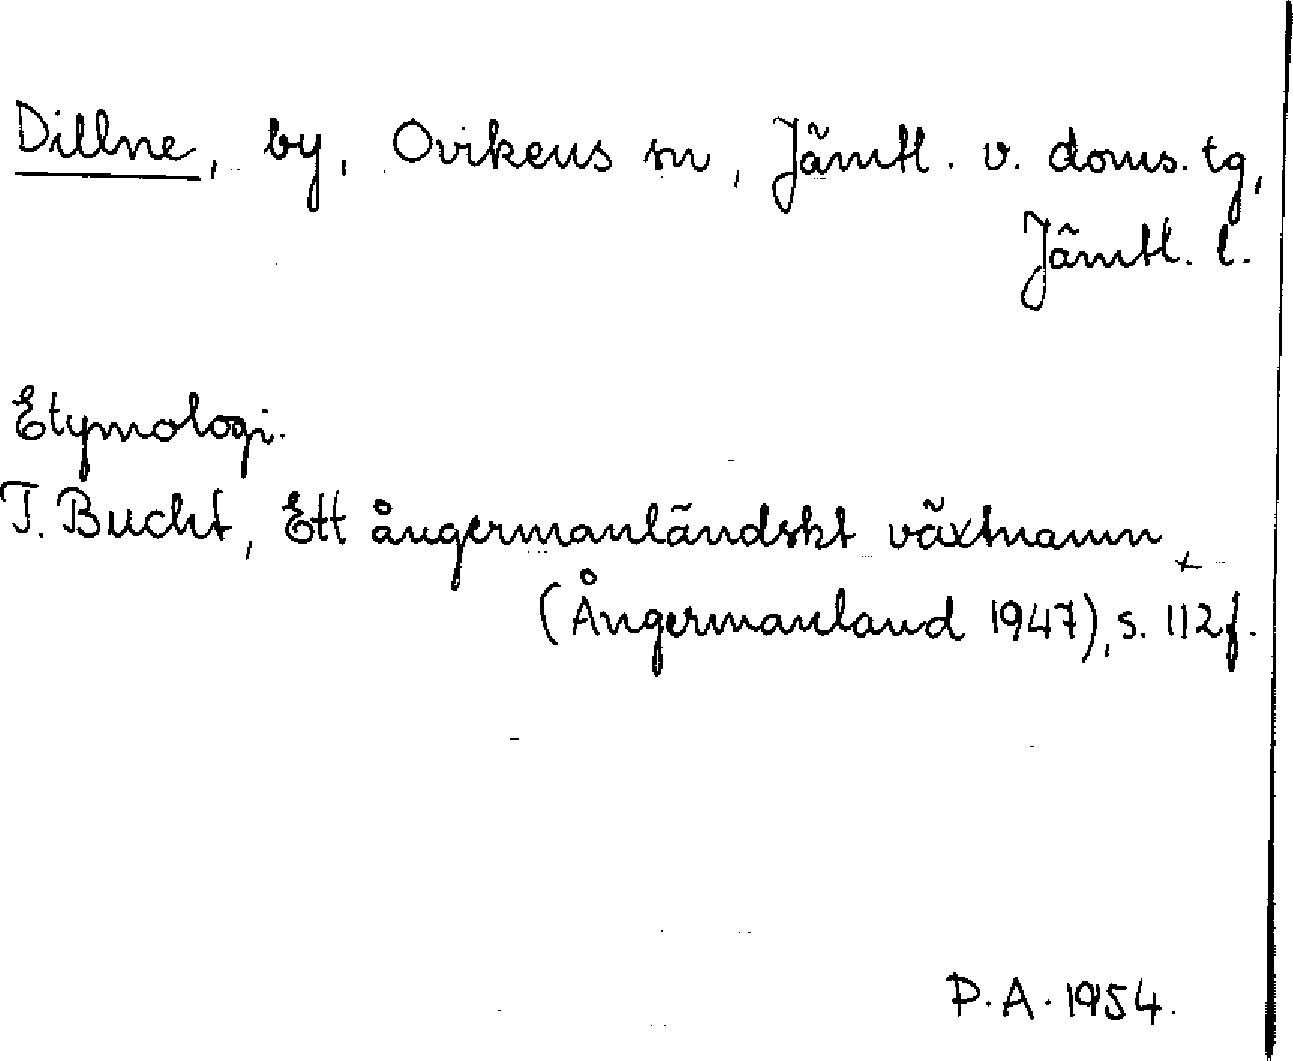 Dillne, by, Ovikens sn, Jämtl. v. doms. tg,
Jämtl. l.
Etymologi.
T. Bucht, Ett ångermanländskt växtnamn
(Ångermanland 1947), s. 112f.
P.A. 1954.